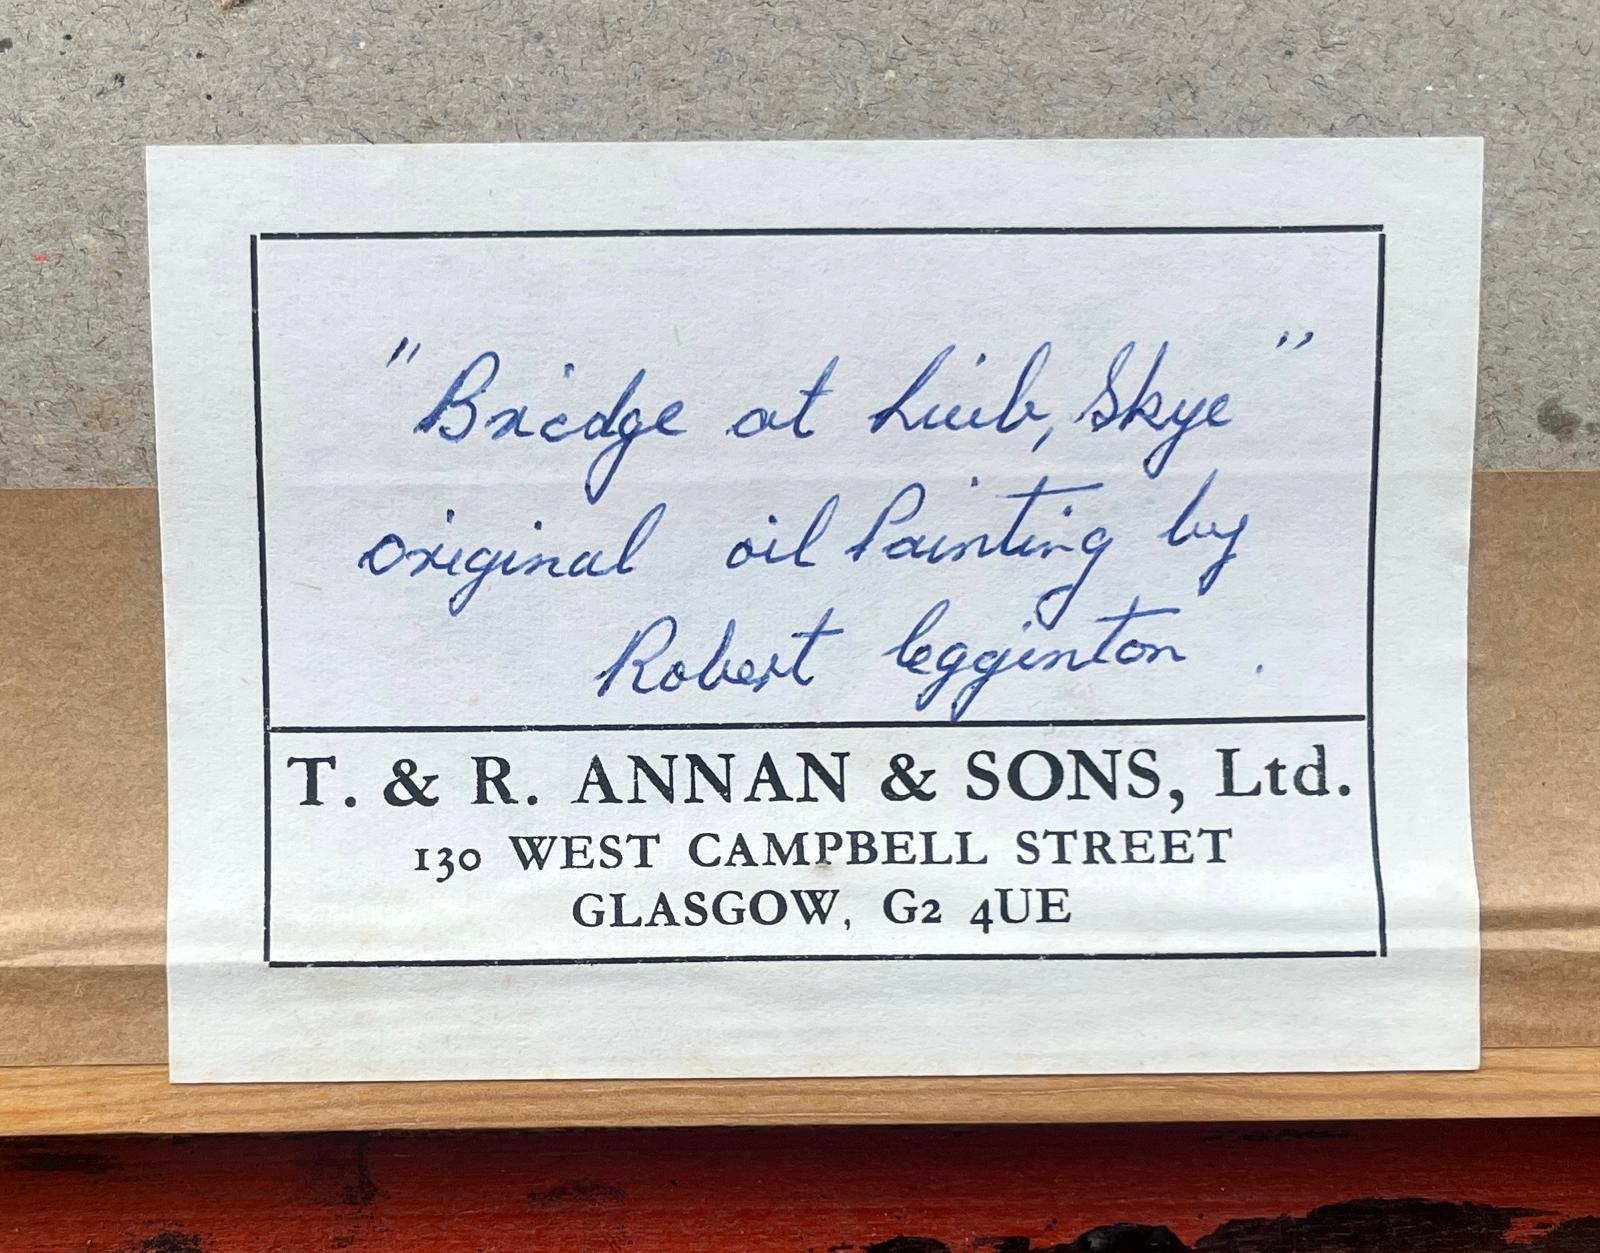 "Bridge at Luib, Skye"
original oil Painting by
Robert Egginton.
T. & R. ANNAN & SONS, Ltd.
130 WEST CAMPBELL STREET
GLASGOW, G2 4UE